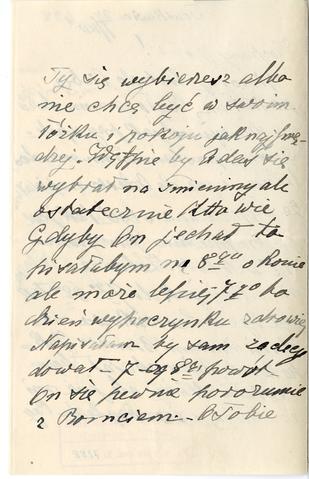 Ty się wybierzesz albo
nie chcą być w swoim
łóżku i pokoju jak naj
drzej. Wątpię by Adaś się
wybrał na imieniny ale
ostatecznie Któ wie
Gdyby On jechał to
pisałabym na 8 o konie
ale może lepiej 7 bo
dzień wypoczynku zdrowiej
Napisałam by sam zadecy
dował - 7 - 8 powót
On się pewnie porozumie
z Romciem - O Tobie